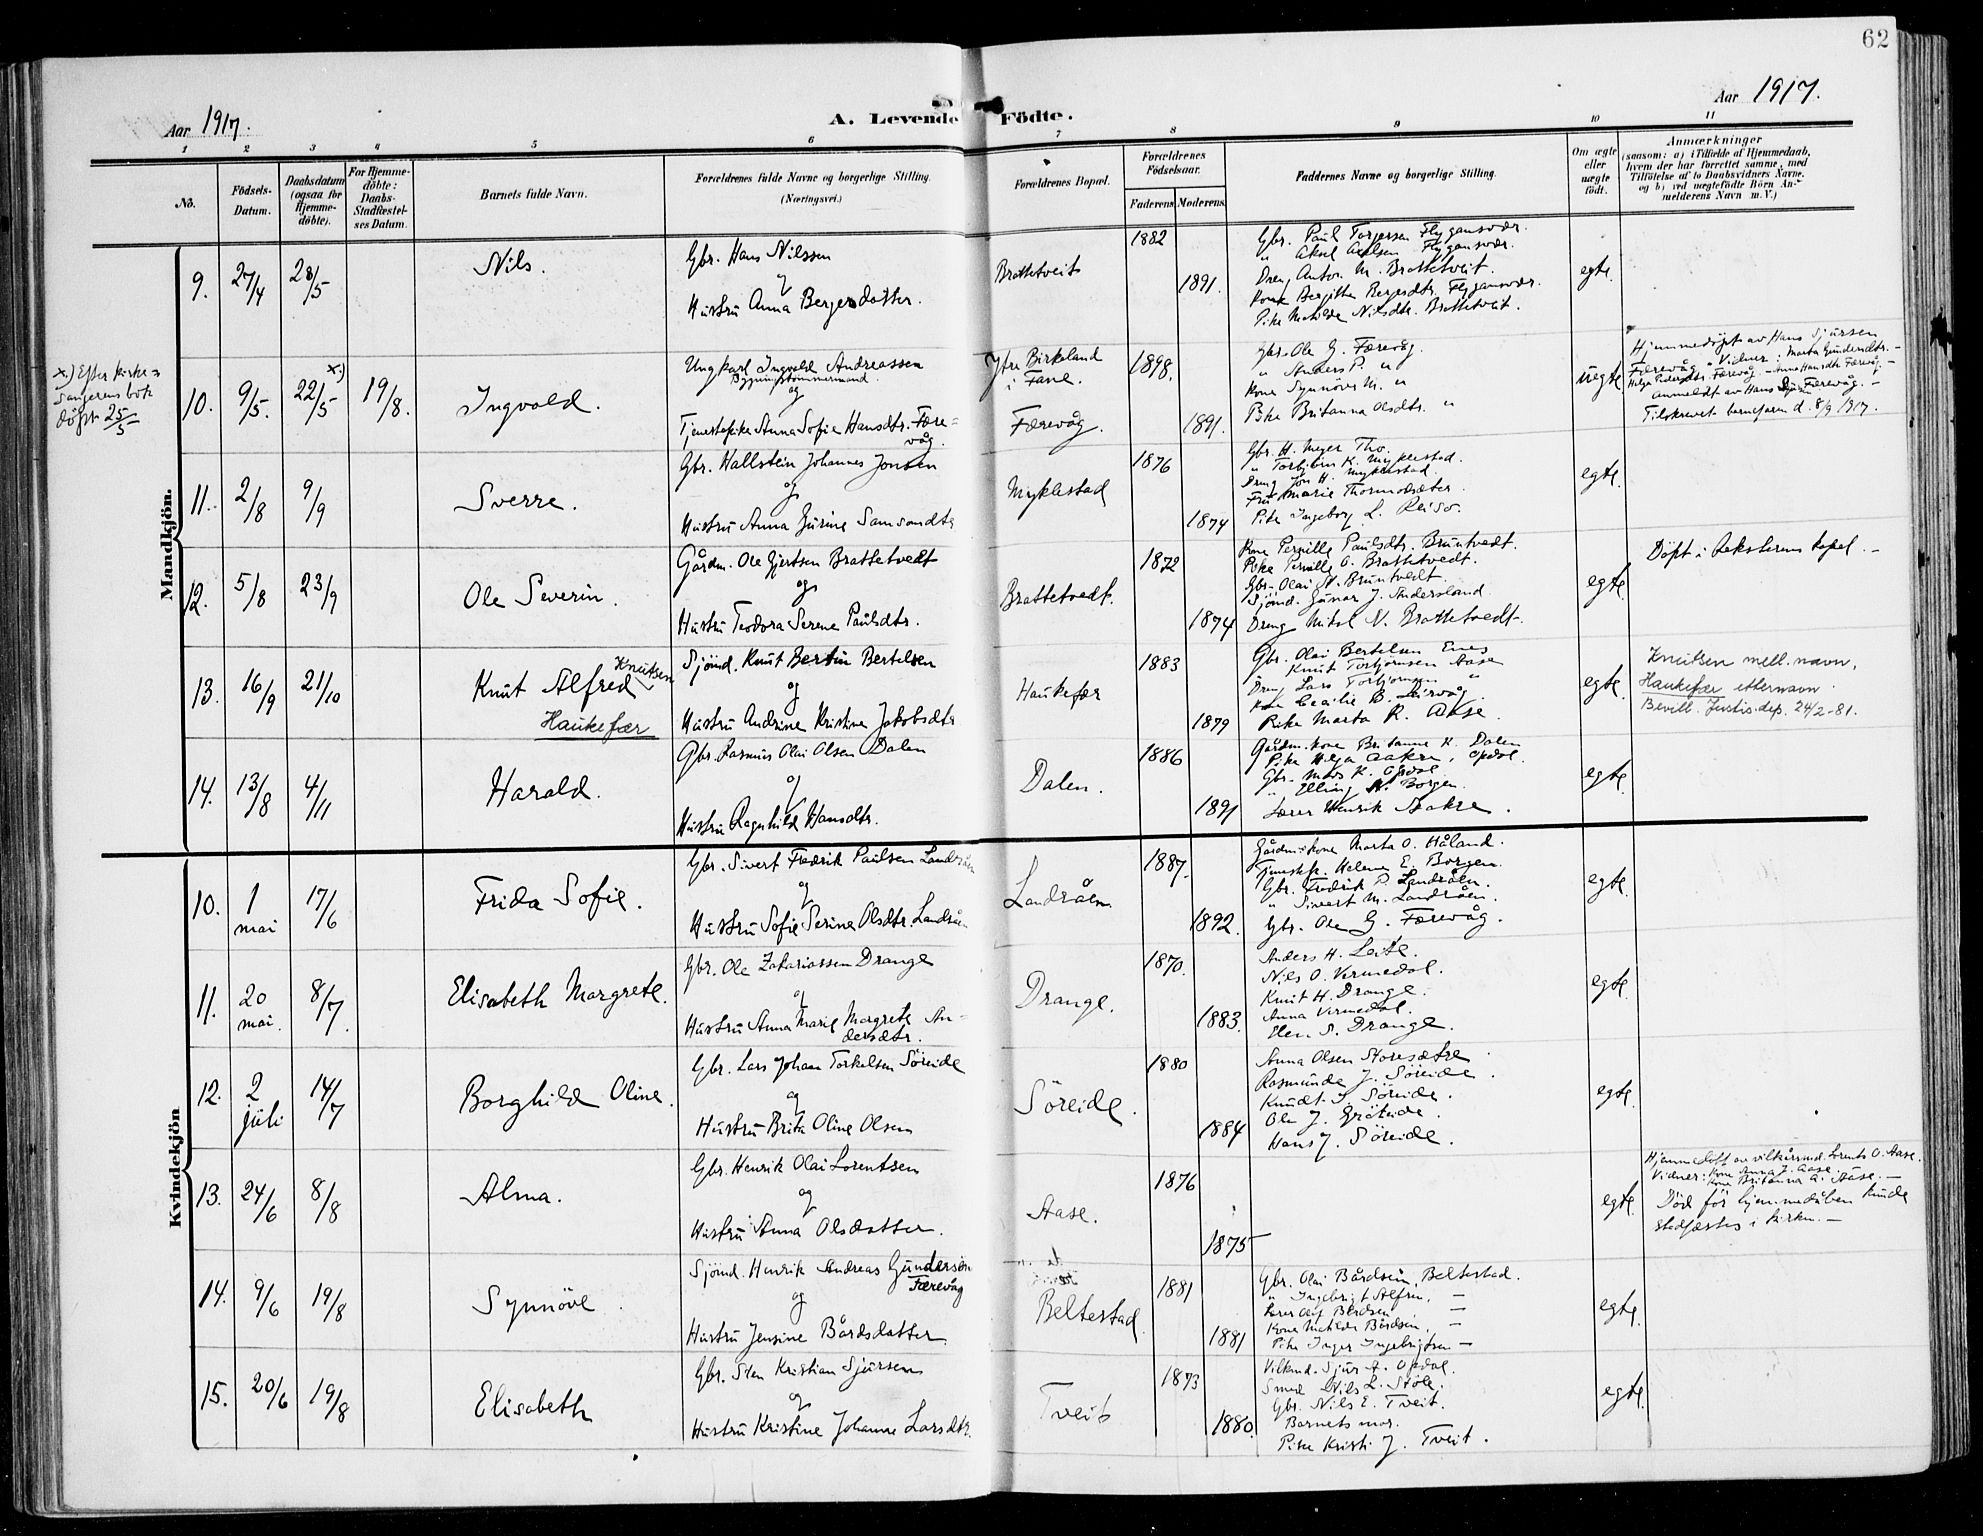 62
Aar 1917.
A. Levende Födte.
Aar 1917.
1 2 3 4 5 6 7 8 9 10 11
No.
Födsels-Datum.
Daabsdatum (ogsaa for Hjemme-döbte).
For Hjemme-döbte: Daabs-Stadfæstel-ses Datum.
Barnets fulde Navn.
Forældrenes fulde Navne og borgerlige Stilling.
(Næringsvei.)
Forældrenes Bopæl.
Forældrenes Födselsaar.
Faderens Moderens.
Faddernes Navne og borgerlige Stilling.
Om ægte eller uægte födt.
Anmærkninger
(saasom: a) i Tilfælde af Hjemmedaab, hvem der har forrettet samme, med Tilföielse af to Daabsvidners Navne, og b) ved uægtefödte Börn Anmelderens Navn m. V.)
Mandkjön.
9. 27/4 28/5 Nils.
Gbr. Hans Nilssen
og
Hustru Anna Bergesdatter.
Brattetveit
1882
1891.
Gbr. Paul Torgersen Flygansvær.
" Aksel Flygansvær.
Dreng Anton M. Brattetveit.
Kone Bergitha Bergesdtr. Flygansvær.
Pike Matilde Nilsdtr. Brattetveit.
egte
x.) Efter kirke=
sangerens bok
döpt 25/5
10. 9/5. 22/5 x.) 19/8. Ingvald.
Ungkarl Ingvald Andreassen
Bygningstömmermand
og
Tjenestepike Anna Sofie Hansdtr. Fære=
våg.
Ytre Birkeland
i Fane.
Færevåg.
1898.
1891.
Gbr. Ole G. Færevåg.
" Anders P. "
Kone Synnöve M. "
Pike Britanna Olsdtr. "
uegte
Hjemmedöpt av Hans Sjursen
Færevåg. Vidner: Marta Gundersdtr. -
Helga Pedersdtr. Færevåg - Anna Hansdtr. Færevåg. -
anmeldt av Hans Færevåg. -
Tilskrevet barnefaren d. 8/9 1917.
11. 2/8 9/9 Sverre.
Gbr. Hallstein Johannes Jonsen
og
Hustru Anna Gurine Samsondtr
Myklestad
1876
1874
Gbr. H. Meyer Tho.
" Torbjörn K. Myklestad.
Dreng Jon H. Myklestad.
Fru Marie Thormodsæter.
Pike Ingeborg L. Reisæ.
egte
12. 5/8 23/9 Ole Severin.
Gårdm. Ole Gjertsen Brattetvedt
og
Hustru Teodora Serene Paulsdtr.
Brattetvedt.
1872
1874
Kone Pernille Paulsdtr. Bruntvedt.
Pike Pernille O. Brattetvedt.
Gbr. Olai Bruntvedt.
Sjömd. Gunar J. Andersland.
Dreng Mikal N. Brattetvedt.
egte
Döpt i Aekstens kapel. -
13. 16/9 21/10 Knut Alfred Knutsen
Haukefær
Sjömd. Knut Bertin Bertelsen
og
Hustru Andrine Kristine Jakobsdtr
Haukefær
1883
1879
Gbr. Olai Bertelsen Enes
Knut Torbjörnsen Aase
Dreng Lars Torbjörnsen "
Kone Cecilie B. Leirvåg
Pike Marta R. Aase.
egte.
Knutsen mell. navn,
Haukefær etternavn.
Bevill. Justis.dep. 24/2-81.
14. 13/8 4/11 Harald.
Gbr. Rasmus Olai Olsen Dalen
og
Hustru Ragnhild Hansdtr.
Dalen.
1886
1891
Gårdm.kone Britanna K. Dalen
Pike Helga Aakre, Opdal.
Gbr. Mons K. Opdal.
" Elling Borgen.
Lærer Henrik Aakre.
egte.
Kvindekjön
10. 1 mai 17/6 Frida Sofie.
Gbr. Sivert Fredrik Paulsen Landråen
og
Hustru Sofie Serine Olsdtr. Landråen
Landråen
1887.
1892.
Gårdm.kone Marta O. Håland.
Tjenestp. Helene E. Borgen.
Gbr. Fredrik P. Landråen.
" Sivert M. Landråen.
Gbr. Ole G. Færevåg.
egte.
11. 20 mai. 8/7. Elisabeth Margrete.
Gbr. Ole Zakariassen Drange
og
Hustru Anna Marie Margrete An=
dersdtr.
Drange.
1870.
1883.
Anders H. Leite.
Nils O. Vermedal.
Knut H. Drange.
Anna Vermedal.
Elen S. Drange.
egte.
12. 2 juli 14/7 Borghild Oline.
Gbr. Lars Johan Torkelsen Söreide
og
Hustru Brita Oline Olsen
Söreide.
1880
1884
Anna Olsen Storesætre.
Rasmunda J. Söreide.
Knudt J. Söreide.
Ole J. Gröteide.
Hans J. Söreide.
egte.
13. 24/6 8/8 Alma.
Gbr. Henrik Olai Lorentsen
og
Hustru Anna Olsdatter.
Aase.
1876
1875
egte.
Hjemmedöpt av vilkårsmd. Lorents O. Aase.
Vidner: Kone Anna J. Aase.
Kone Britanna A. Aase. -
Död för hjemmedåben kunde
stadfæstes i kirken. -
14. 9/6 19/8 Synnöve.
Sjömd. Henrik Andreas Gundersen
Færevåg
og
Hustru Jensine Bårdsdatter.
Beltestad
1881
1881
Gbr. Olai Bårdsen, Beltestad.
" Ingebrigt Alfsen, -
Lærer Alf Bårdsen -
Kone Matilde Bårdsen, -
Pike Inger Ingebrigtsen -
egte.
15. 20/6 19/8 Elisabeth
Gbr. Sten Kristian Sjursen
og
Hustru Kristine Johanne Larsdtr.
Tveit
1873
1880.
Vilkmd. Sjur A. Opdal.
Smed Nils L. Stöle.
Gbr. Nils E. Tveit.
Barnets mor.
Pike Kristi J. Tveit.
egte.